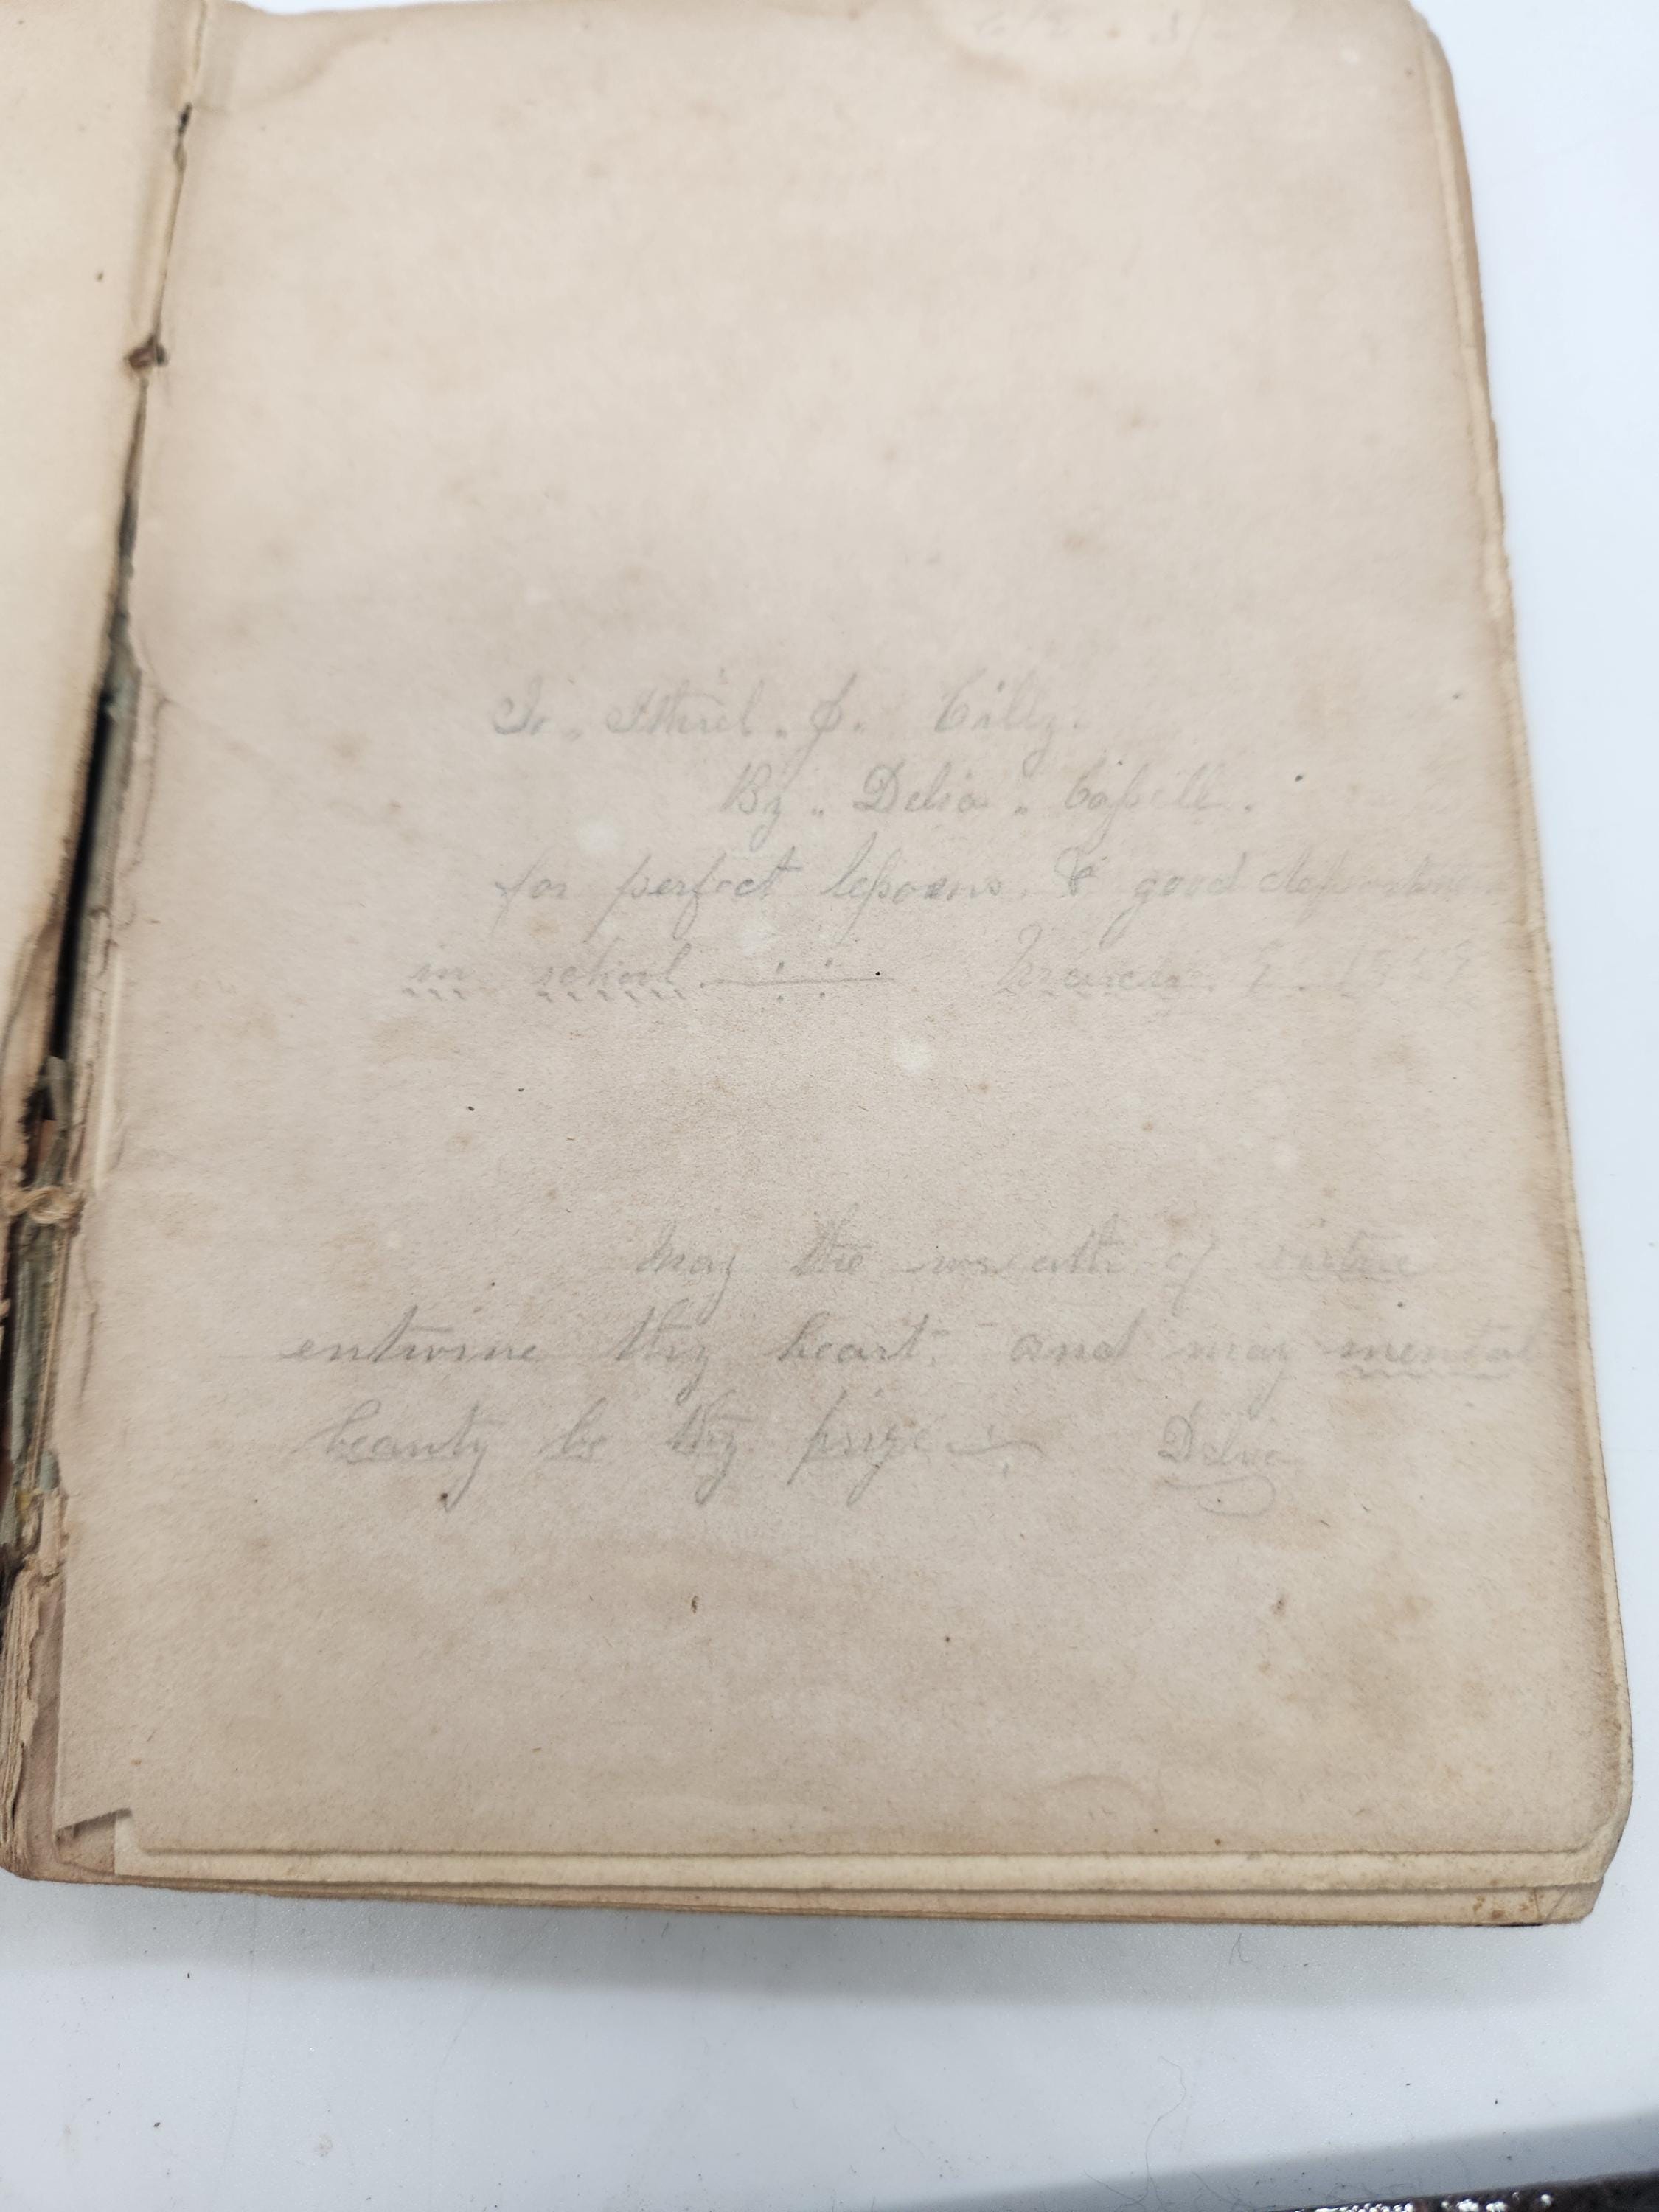 To. Ithiel. J. Cilley.
By. Delia. Capell.
for perfect lessons, & good deportment
in school.
May the wreath of virtue
entwine thy heart, and may mental
beauty be thy prize Delia